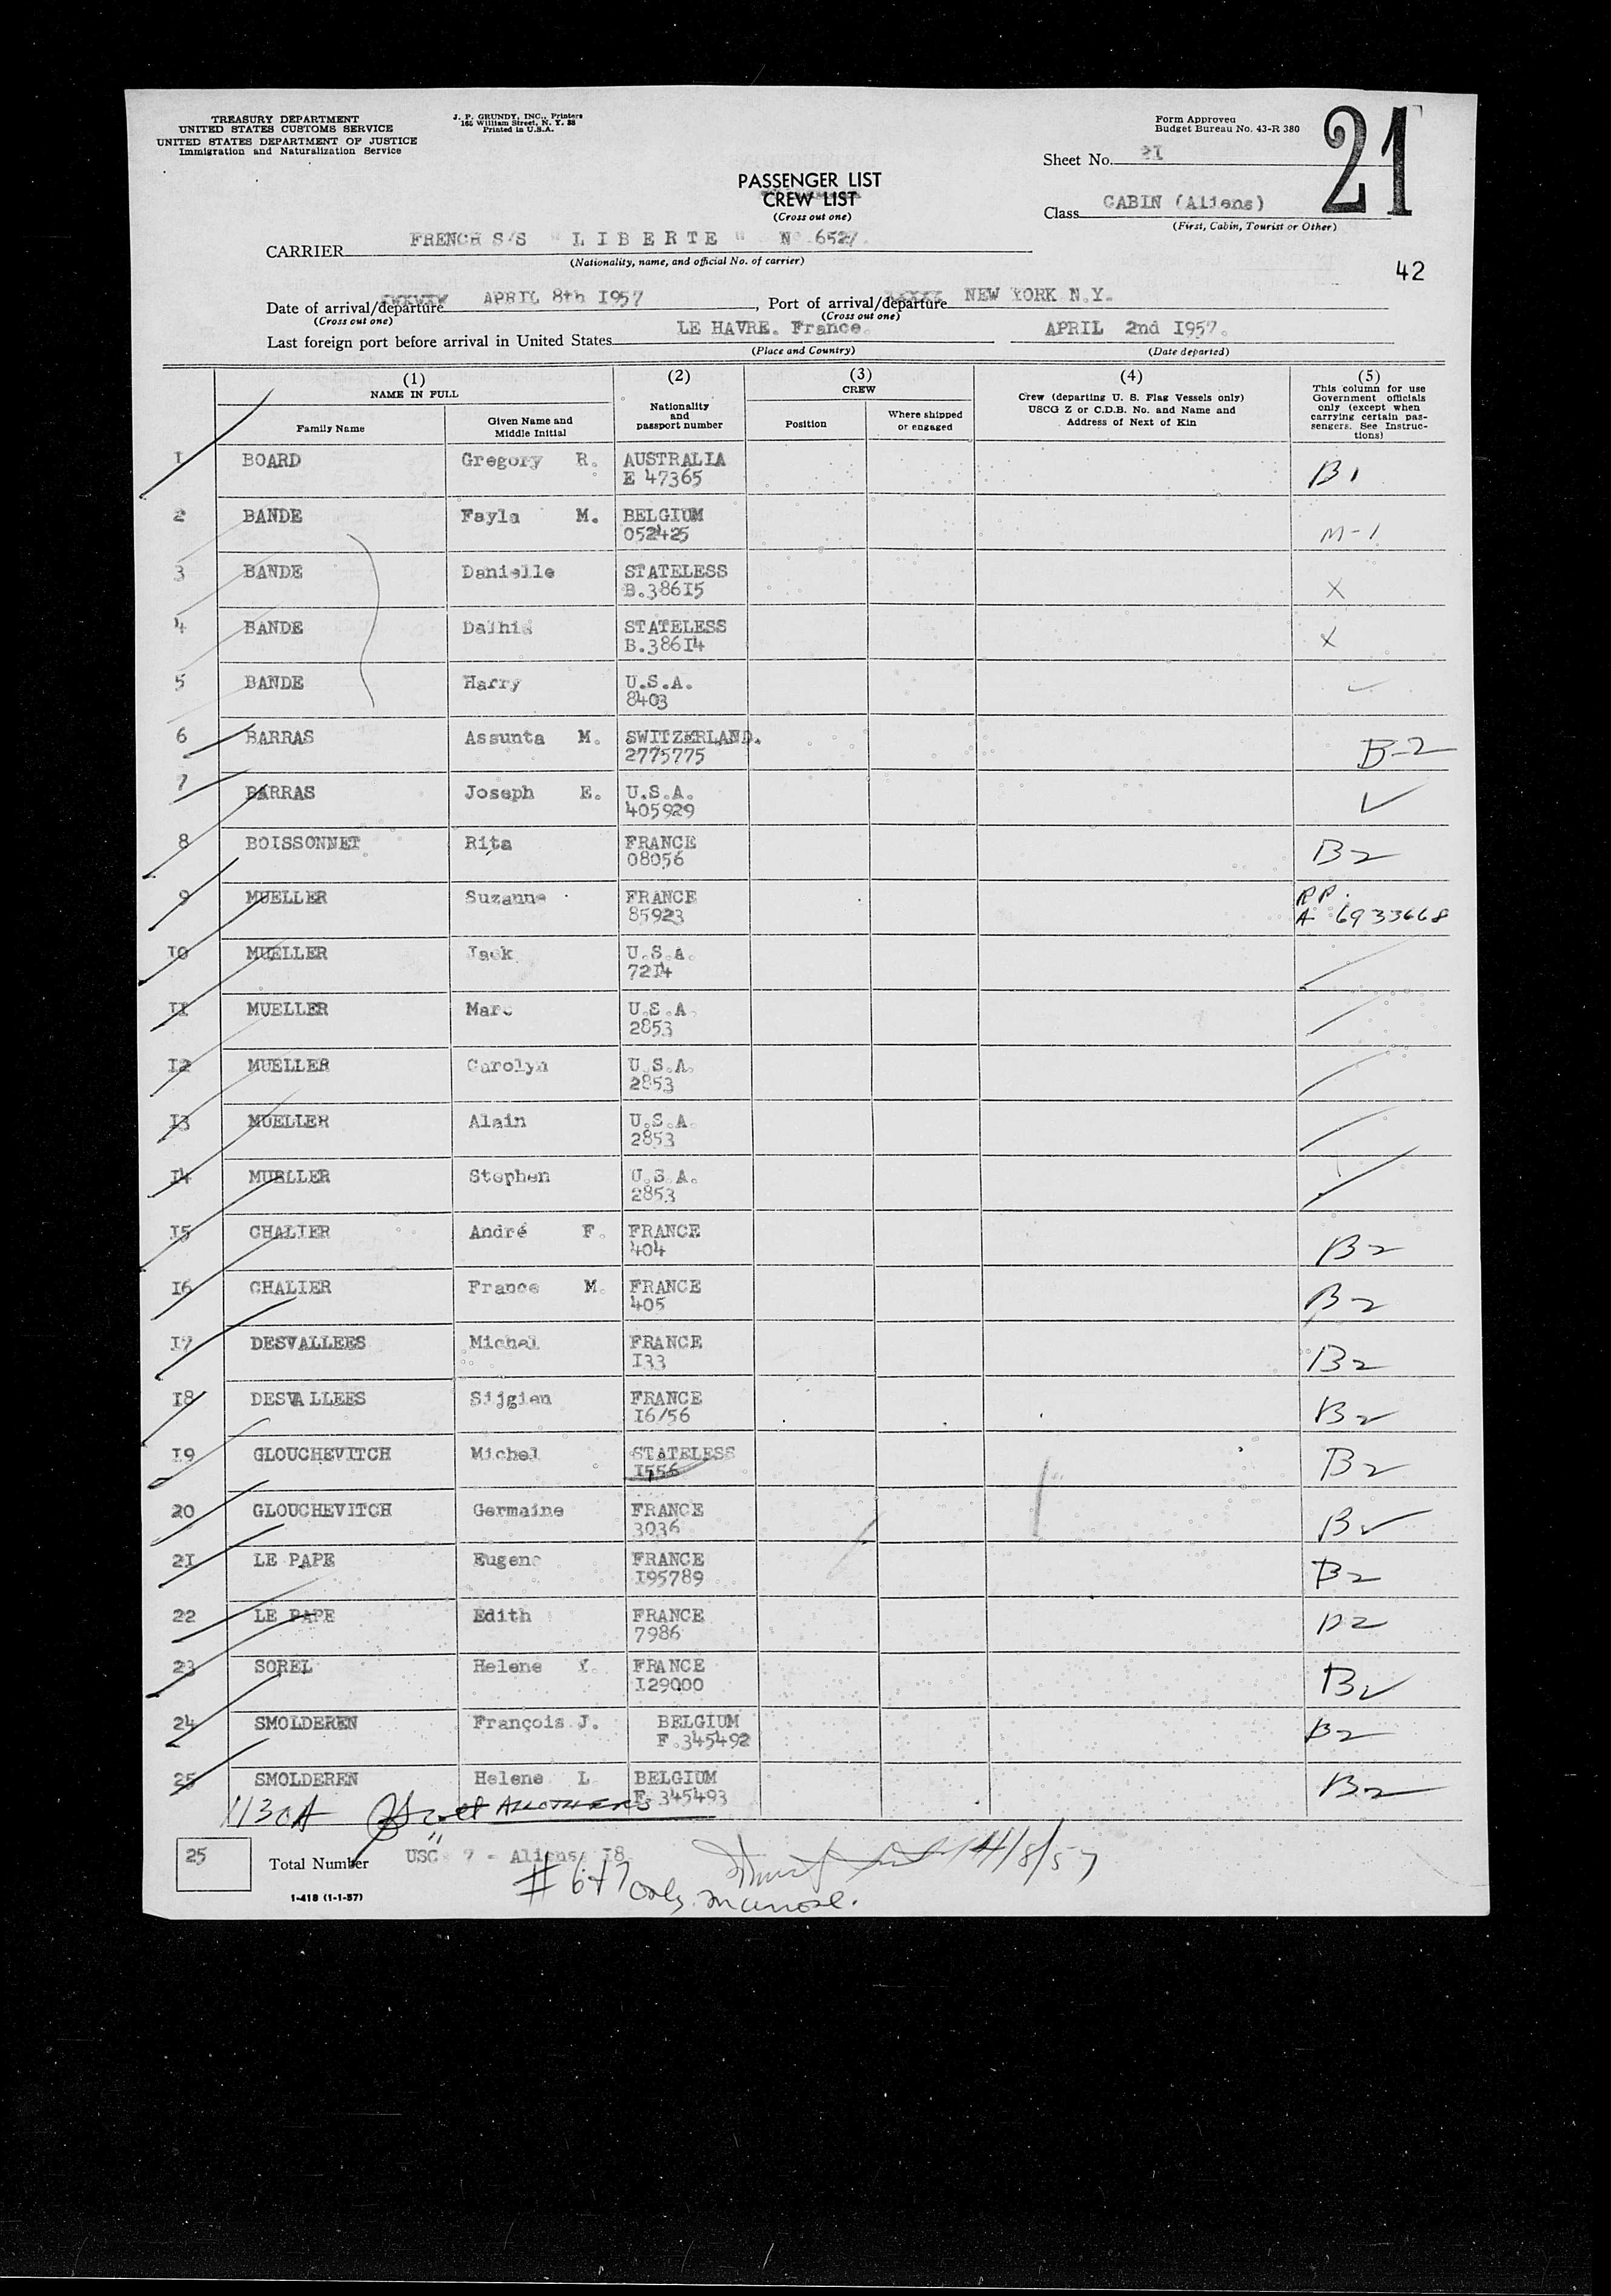 TREASURY DEPARTMENT
UNITED STATES CUSTOMS SERVICE
UNITED STATES DEPARTMENT OF JUSTICE
Immigration and Naturalization Service
J. P. GRUNDY, INC., Printers
165 William Street, N. Y. 38
Printed in U.S.A.
Form Approved
Budget Bureau No. 43-R 380
21
Sheet No. 2I
PASSENGER LIST
CREW LIST
(Cross out one)
Class CABIN (Aliens)
(First, Cabin, Tourist or Other)
CARRIER FRENCH S/S " L I B E R T E " N° 6527.
(Nationality, name, and official No. of carrier)
42
Date of arrival/departure APRIL 8th I957, Port of arrival/departure NEW YORK N.Y.
(Cross out one) (Cross out one)
Last foreign port before arrival in United States LE HAVRE. France. APRIL 2nd I957.
(Place and Country) (Date departed)
(1) NAME IN FULL (2) Nationality and passport number (3) CREW (4) Crew (departing U. S. Flag Vessels only) USCG Z or C.D.B. No. and Name and Address of Next of Kin (5) This column for use Government officials only (except when carrying certain passengers. See Instructions)
Family Name Given Name and Middle Initial Position Where shipped or engaged
I BOARD Gregory R. AUSTRALIA B1
E 47365
2 BANDE Fayla M. BELGIUM M-1
052425
3 BANDE Danielle STATELESS X
B.386I5
4 BANDE STATELESS X
B.386I4
5 BANDE Harry U.S.A.
8403
6 BARRAS Assunta M. SWITZERLAND. B-2
2775775
7 BARRAS Joseph E. U.S.A. ✓
405929
8 BOISSONNET Rita FRANCE B2
08056
9 MUELLER Suzanne FRANCE RP.
85923 A 6933668
I0 MUELLER Jack U.S.A.
72I4
II MUELLER Marc U.S.A.
2853
I2 MUELLER Carolyn U.S.A.
2853
I3 MUELLER Alain U.S.A.
2853
I4 MUELLER Stephen U.S.A.
2853
I5 CHALIER André F. FRANCE B2
404
I6 CHALIER France M. FRANCE B2
405
I7 DESVALLEES Michel FRANCE B2
I33
I8 DESVALLEES Sijgien FRANCE B2
I6/56
I9 GLOUCHEVITCH Michel STATELESS B2
I556
20 GLOUCHEVITCH Germaine FRANCE B2
3036
2I LE PAPE Eugene FRANCE B2
I95789
22 LE PAPE Edith FRANCE B2
7986
23 SOREL Helene Y. FRANCE B2
I29000
24 SMOLDEREN François J. BELGIUM B2
F.345492
25 SMOLDEREN Helene L BELGIUM B2
F.345493
25
Total Number USC 7 - Aliens I8
4/8/57
# 6+7 only
1-418 (1-1-57)